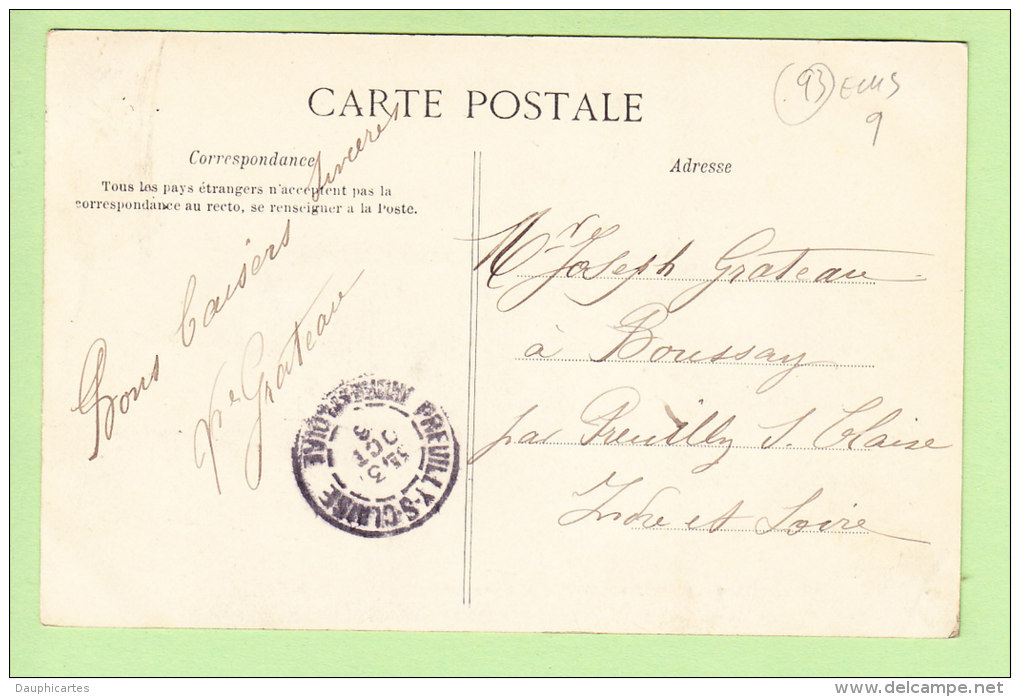 CARTE POSTALE
93 EMS
9
Correspondance
Tous les pays étrangers n'acceptent pas la
correspondance au recto, se renseigner a la Poste.
Adresse
Bons baisers sincères
Grateau
Mr Joseph Grateau
à Boussay
par Preuilly S. Claise
Indre et Loire
PREUILLY-S-CLAISE
Dauphicartes
www.delcampe.net